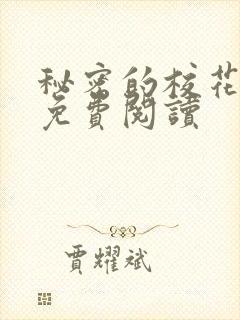 秘密的校花
免費閱讀
賈耀斌